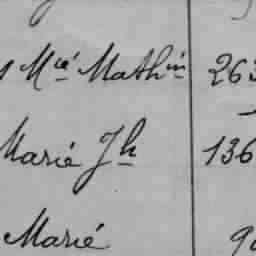 Mié Mathin 263
Marié Jh 136
Marié 9